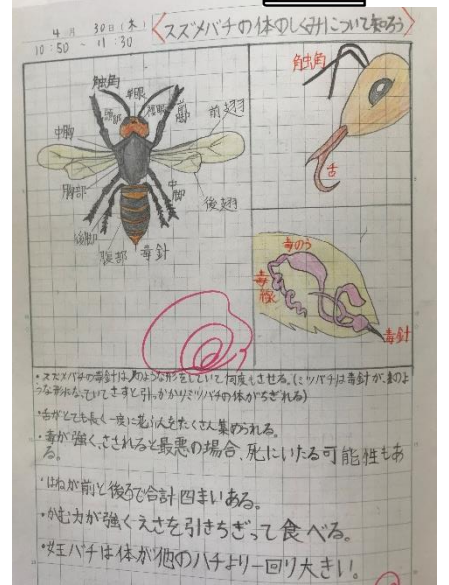 4月 30日(木)
10:50 - 11:30
〈スズメバチの体のしくみについて知ろう〉
触角
単眼
複眼
頭部
前脚
前翅
中脚
胸部
中脚
後翅
後脚
腹部
毒針
触角
舌
毒のう
毒腺
毒針
・スズメバチの毒針は
のような形をしていて何度もさせる。(ミツバチは毒針が
のよ
うな形になっていてさすと引っかかりミツバチの体がちぎれる)
・舌がとても長く一度に花ふんをたくさん集められる。
・毒が強く、さされると最悪の場合、死にいたる可能性もあ
る。
・はねが前と後ろで合計四まいある。
・かむ力が強くえさを引きちぎって食べる。
・女王バチは体が他のハチより一回り大きい。